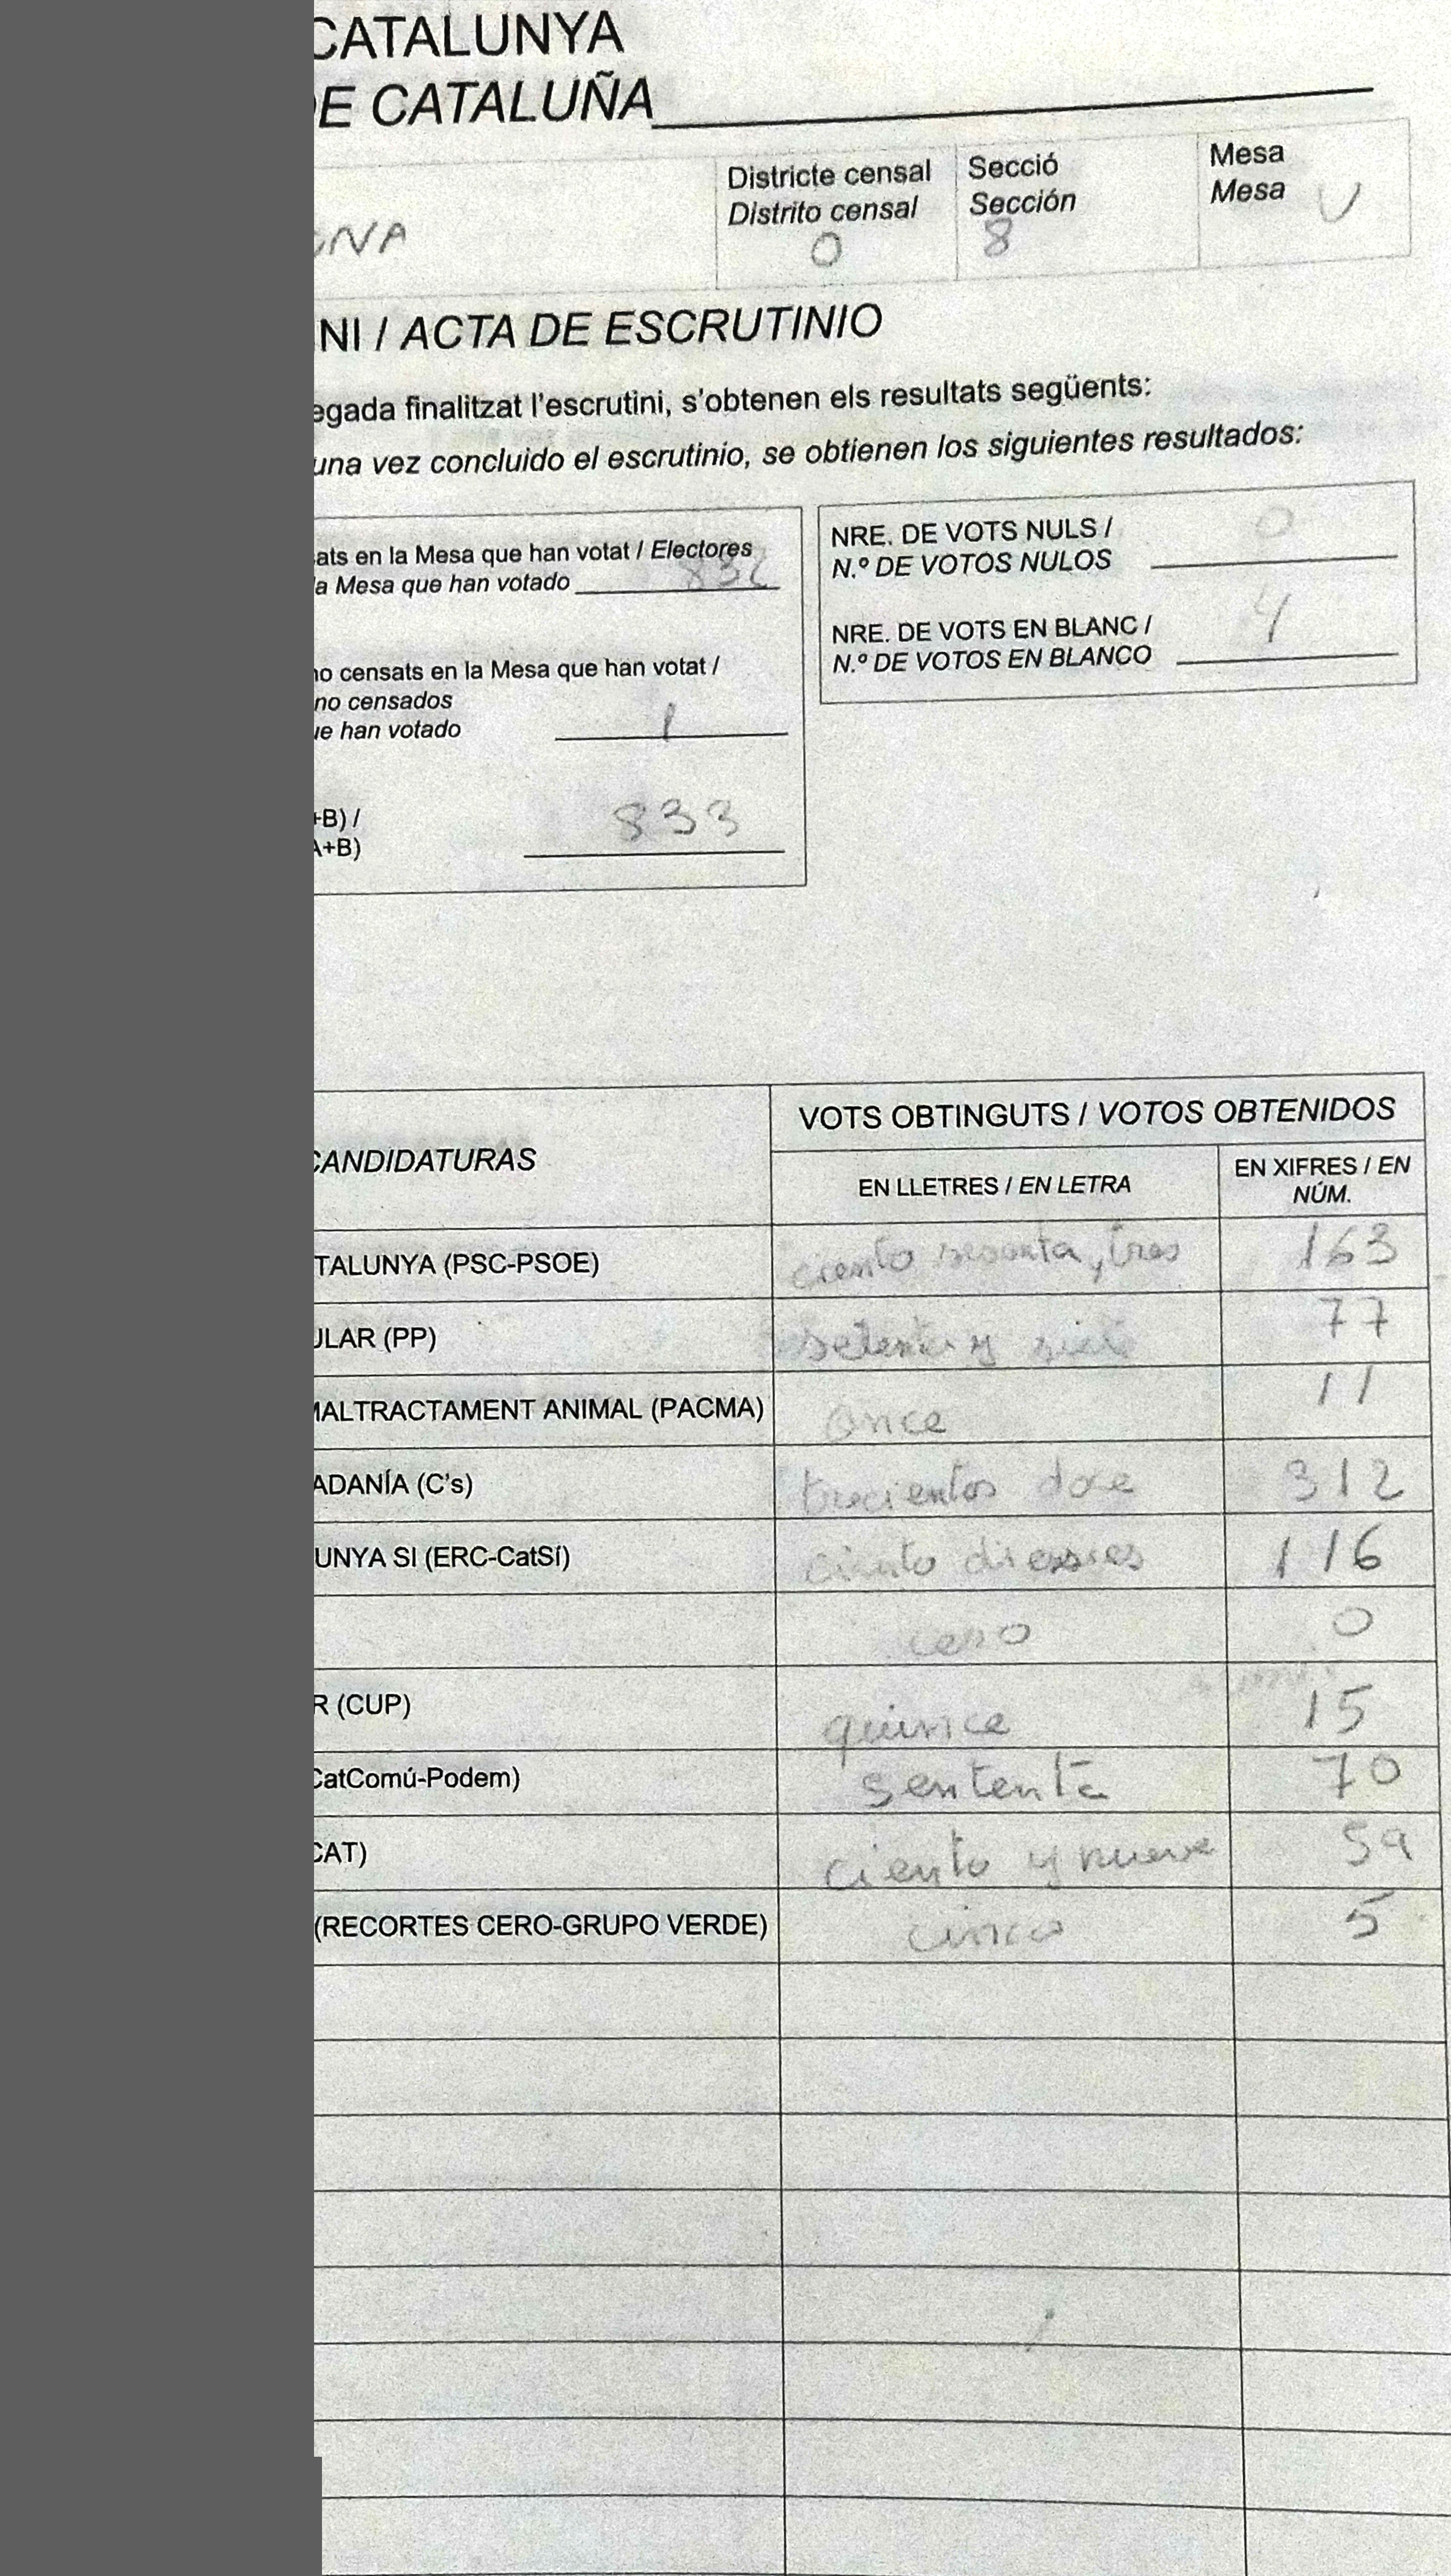 CATALUNYA
E CATALUÑA
Districte censal
Distrito censal
0
Secció
Sección
8
Mesa
Mesa U
NA
NI / ACTA DE ESCRUTINIO
egada finalitzat l'escrutini, s'obtenen els resultats següents:
una vez concluido el escrutinio, se obtienen los siguientes resultados:
ats en la Mesa que han votat / Electores
a Mesa que han votado 832
no censats en la Mesa que han votat /
no censados
ue han votado 1
+B) /
A+B) 833
NRE. DE VOTS NULS /
N.º DE VOTOS NULOS 0
NRE. DE VOTS EN BLANC /
N.º DE VOTOS EN BLANCO 4
CANDIDATURAS
VOTS OBTINGUTS / VOTOS OBTENIDOS
EN LLETRES / EN LETRA
EN XIFRES / EN
NÚM.
TALUNYA (PSC-PSOE) ciento sesenta y tres 163
ULAR (PP) setenta y siete 77
MALTRACTAMENT ANIMAL (PACMA) once 11
ADANÍA (C's) trecientos doce 312
UNYA SI (ERC-CatSí) ciento 116
cero 0
R (CUP) quince 15
CatComú-Podem) sententa 70
CAT) ciento y nueve 59
(RECORTES CERO-GRUPO VERDE) cinco 5